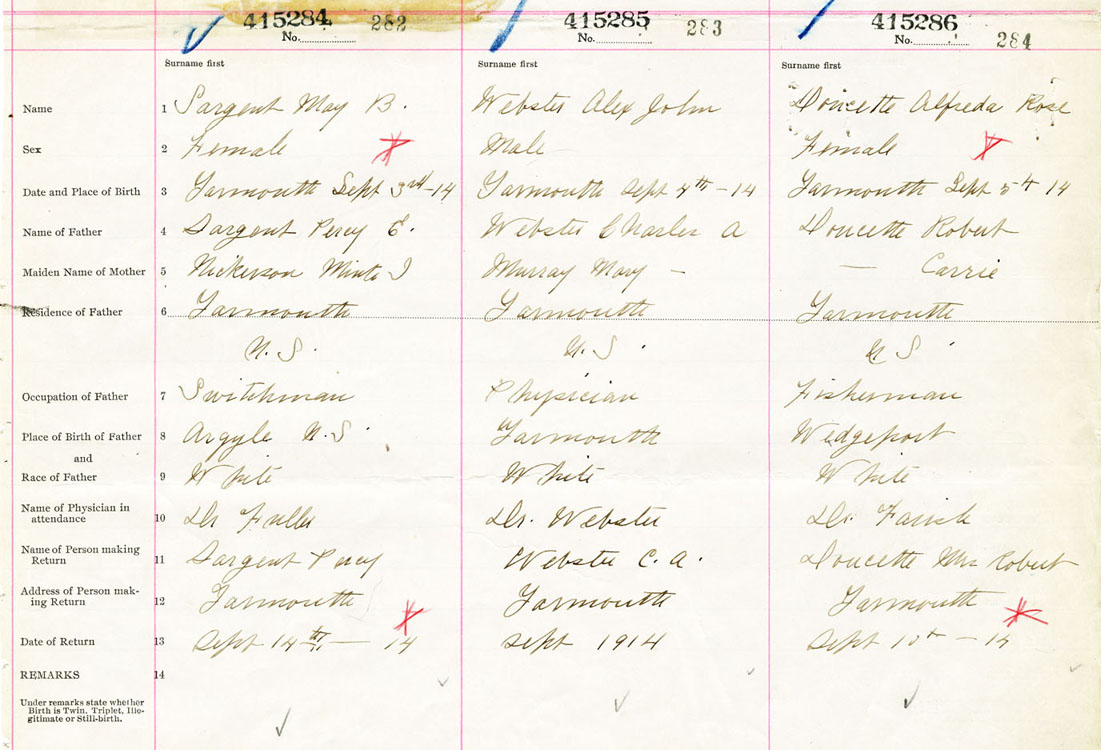 415284 415285 415286
No. 282 No. 283 No. 284
Surname first Surname first Surname first
Name 1 Sargent May B. Webster Alex John Doucette Alfreda Rose
Sex 2 Female Male Female
Date and Place of Birth 3 Yarmouth Sept 3rd-14 Yarmouth Sept 4th-14 Yarmouth Sept 5th 14
Name of Father 4 Sargent Percy E. Webster Charles A Doucette Robert
Maiden Name of Mother 5 Nickerson J Murray Mary — — Carrie
Residence of Father 6 Yarmouth Yarmouth Yarmouth
N. S. N. S. N S
Occupation of Father 7 Switchman Physician Fisherman
Place of Birth of Father 8 Argyle N. S. Yarmouth Wedgeport
and
Race of Father 9 White White White
Name of Physician in
attendance 10 Dr Fuller Dr. Webster Dr. Farish
Name of Person making
Return 11 Sargent Percy Webster C. A. Doucette Mrs Robert
Address of Person mak-
ing Return 12 Yarmouth Yarmouth Yarmouth
Date of Return 13 Sept 14th — 14 Sept 1914 Sept 10th — 14
REMARKS 14
Under remarks state whether
Birth is Twin, Triplet, Ille-
gitimate or Still-birth.